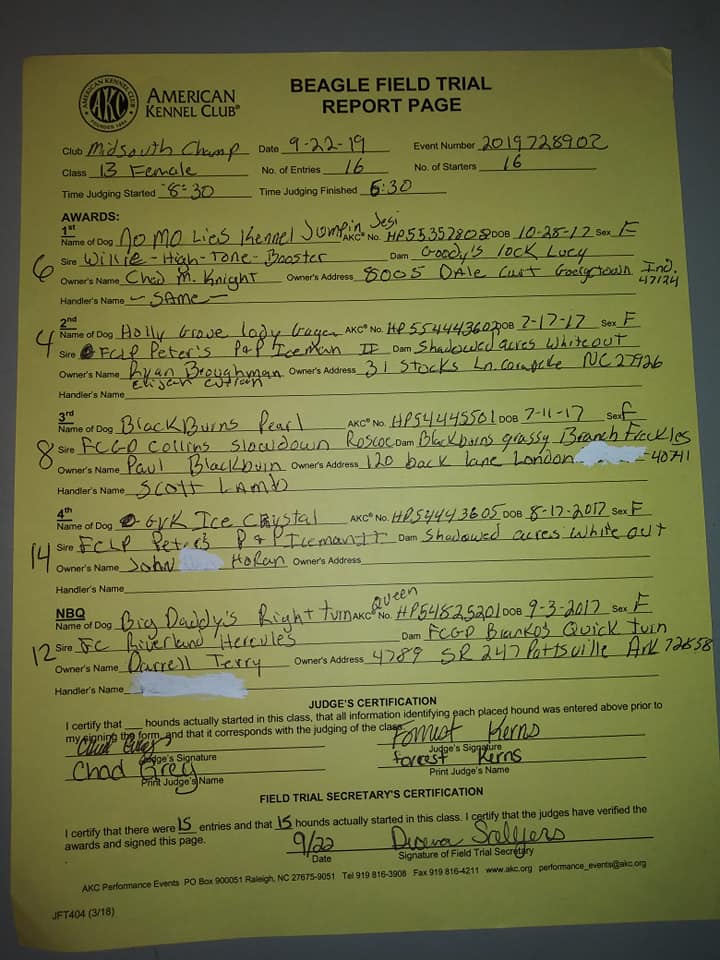 AMERICAN KENNEL CLUB • FOUNDED 1884
AKC
AMERICAN
KENNEL CLUB®
BEAGLE FIELD TRIAL
REPORT PAGE
Club Midsouth Champ Date 9-22-19 Event Number 2019728902
Class 13 Female No. of Entries 16 No. of Starters 16
Time Judging Started 8:30 Time Judging Finished 6:30
AWARDS:
1st
Name of Dog No Mo Lies Kennel Jumpin Jesi AKC® No. HP55352808 DOB 10-28-17 Sex F
6 Sire Willie-High-Tone-Booster Dam Goody's lock Lucy
Owner's Name Chad M. Knight Owner's Address 8005 DAle Curt Georgytown Ind. 47124
Handler's Name - SAMe -
2nd
4 Name of Dog Holly Grove Lady Gaga AKC® No. HP55444360 DOB 7-17-17 Sex F
Sire FCLP Peter's P&P Iceman II Dam Shadowed acres Whiteout
Owner's Name Ryan Broughman Owner's Address 31 Stocks Ln. NC 27926
Handler's Name
3rd
Name of Dog BlackBurns Pearl AKC® No. HP54445501 DOB 7-11-17 Sex F
8 Sire FCGD Collins Slowdown Roscoe Dam Blackburns grassy Branch Freckles
Owner's Name Paul Blackburn Owner's Address 120 back lane London 40741
Handler's Name Scott Lamb
4th
Name of Dog GVK Ice Crystal AKC® No. HP54443605 DOB 8-17-2017 Sex F
14 Sire FCLP Peter's P&P Iceman II Dam Shadowed acres White out
Owner's Name John Horan Owner's Address
Handler's Name
NBQ
Name of Dog Big Daddy's Right turn Queen AKC® No. HP54825201 DOB 9-3-2017 Sex F
12 Sire FC Riverland Hercules Dam FCGD Branko's Quick turn
Owner's Name Darrell Terry Owner's Address 4789 SR 247 Pottsville Ark 72858
Handler's Name
JUDGE'S CERTIFICATION
I certify that ___ hounds actually started in this class, that all information identifying each placed hound was entered above prior to
my signing the form, and that it corresponds with the judging of the class.
Forrest Kerns
Judge's Signature Judge's Signature
Chad Grey Forrest Kerns
Print Judge's Name Print Judge's Name
FIELD TRIAL SECRETARY'S CERTIFICATION
I certify that there were 15 entries and that 15 hounds actually started in this class. I certify that the judges have verified the
awards and signed this page.
9/22
Date Signature of Field Trial Secretary
AKC Performance Events PO Box 900051 Raleigh, NC 27675-9051 Tel 919 816-3908 Fax 919 816-4211 www.akc.org performance_events@akc.org
JFT404 (3/18)